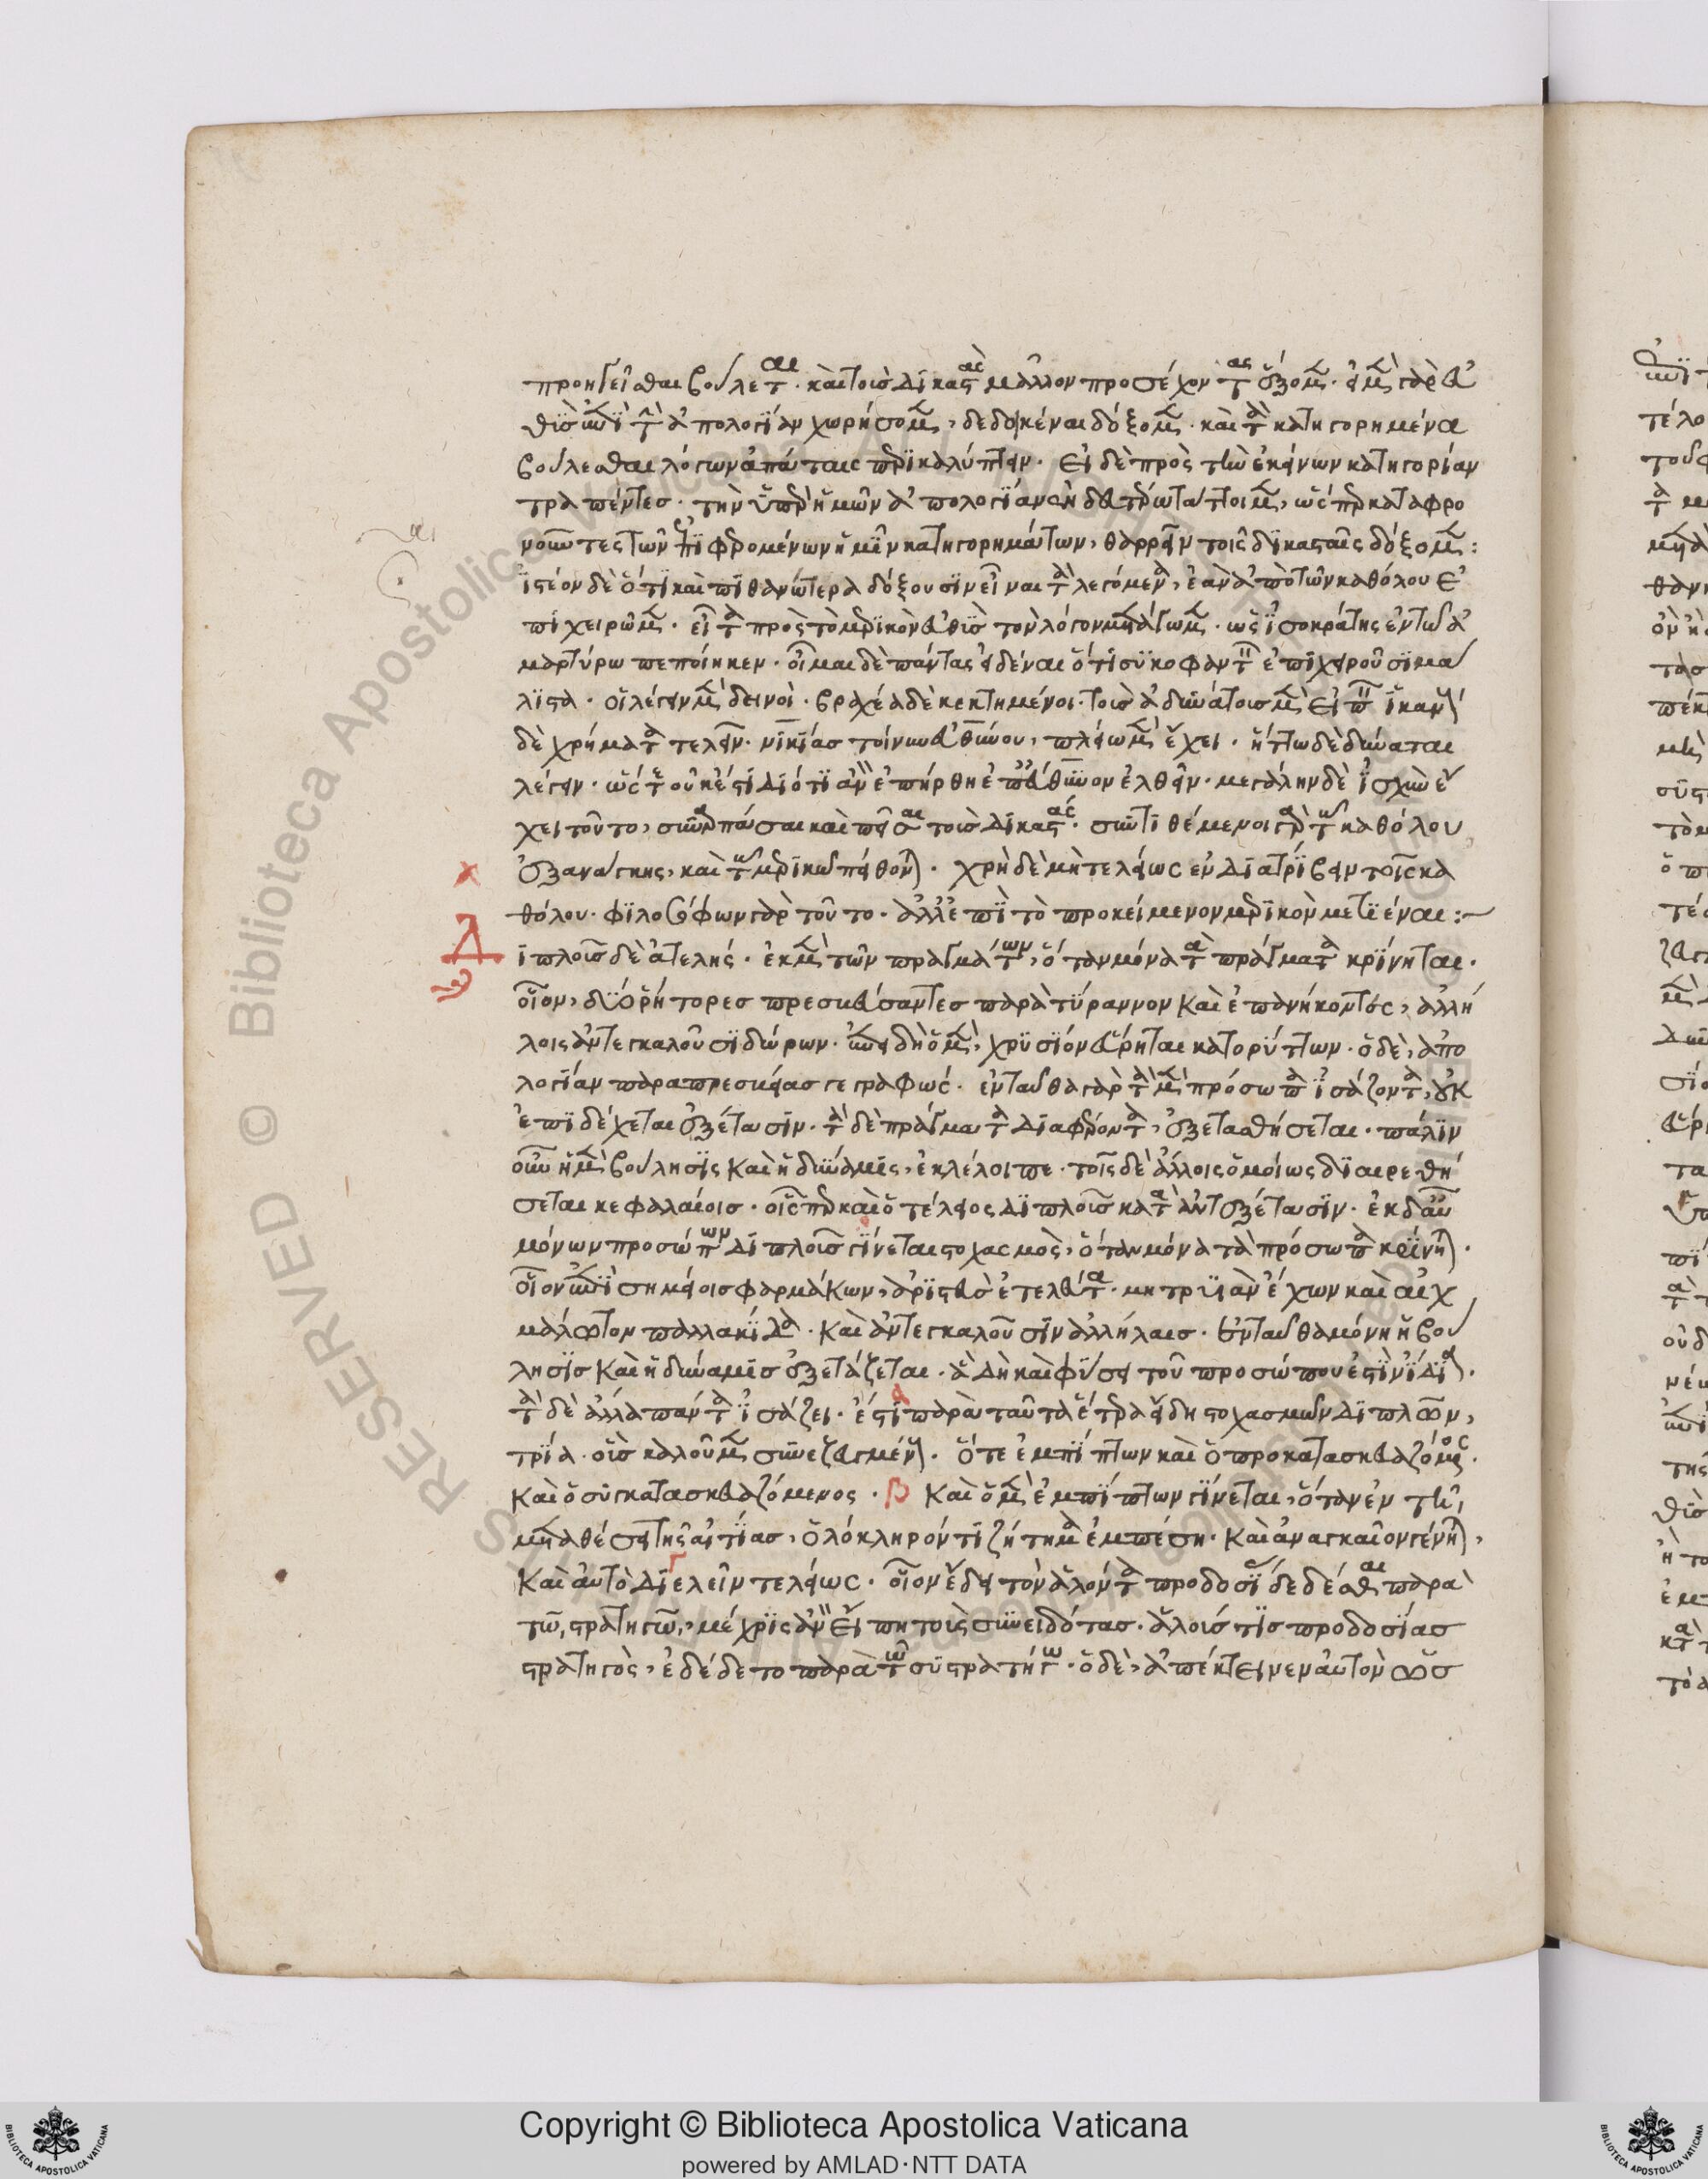 προηγεῖσθαι βούλεται · καὶ τοῖς δικασταῖς μᾶλλον προσέχοντας ἕξομεν · εἰ μὲν γὰρ εὐ
θὺς ἐπὶ τὴν ἀπολογίαν χωρήσομεν, δεδοικέναι δόξομεν · καὶ τὰ κατηγορημένα
βούλεσθαι λόγων ἀπάταις περικαλύπτειν · εἰ δὲ πρὸς τὴν ἐκείνων κατηγορίαν
τραπέντες · τὴν ὑπὲρ ἡμῶν ἀπολογίαν
νοοῦντες τῶν ἐπιφερομένων ἡμῖν κατηγορημάτων, θαρρεῖν τοῖς δικασταῖς δόξομεν :
ἰστέον δὲ ὅτι καὶ πιθανώτερα δόξουσιν εἶναι τὰ λεγόμενα, ἐὰν ἀπὸ τῶν καθόλου ἐ
πιχειρῶμεν · εἶτα πρὸς τὸ μερικὸν εὐθὺς τὸν λόγον μετάγωμεν · ὡς ἰσοκράτης ἐν τῷ ἀ
μαρτύρω πεποίηκεν · οἶμαι δὲ πάντας εἰδέναι ὅτι συκοφαντεῖν ἐπιχειροῦσι μά
λιστα · οἱ λέγειν μὲν δεινοὶ · βραχέα δὲ κεκτημένοι · τοῖς ἀδυνάτοις μὲν εἰπεῖν ἱκανοῖς
δὲ χρήματα τελεῖν · νικίας τοίνυν εὐθύνου, πλείω μὲν ἔχει · ἧττω δὲ δύναται
λέγειν · ὥστε οὐκ ἔστι διότι ἂν ἐπήρθη ἐπ' εὐθύνουν ἐλθεῖν · μεγάλην δὲ ἰσχὺν ἔ
χει τοῦτο, συναρπάσαι καὶ πεῖσαι τοὺς δικαστάς · συντιθέμενοι γὰρ τῷ καθόλου
ἐξ ἀνάγκης, καὶ τῷ μερικῷ πείθονται · χρὴ δὲ μὴ τελείως ἐνδιατρίβειν τοῖς κα
θόλου · φιλοσόφων γὰρ τοῦτο · ἀλλ' ἐπὶ τὸ προκείμενον μερικὸν μετιέναι :
Διπλοῦς δὲ ἀτελής · ἐκ μὲν τῶν πραγμάτων, ὅταν μόνα τὰ πράγματα κρίνηται ·
οἷον, δύο ῥήτορες πρεσβεύσαντες παρὰ τύραννον καὶ ἐπανήκοντες, ἀλλή
λοις ἀντεγκαλοῦσι δώρων · ἐπειδὴ ὁ μὲν, χρυσίον εὕρηται κατορύττων · ὁ δὲ, ἀπο
λογίαν παραπρεσβείας γεγραφώς · ἐνταῦθα γὰρ τὰ μὲν πρόσωπα ἰσάζοντα, οὐκ
ἐπιδέχεται ἐξέτασιν · τὰ δὲ πράγματα διαφέροντα, ἐξετασθήσεται · πάλιν
οὖν ἡ μὲν βούλησις καὶ ἡ δύναμις, ἐκλέλοιπε · τοῖς δὲ ἄλλοις ὁμοίως διαιρεθή
σεται κεφαλαίοις · οἷς περ καὶ ὁ τέλειος διπλοῦς κατὰ ἀντεξέτασιν · ἐκ δὲ αὖ
μόνων προσώπων διπλοῦς γίνεται στοχασμὸς, ὅταν μόνα τὰ πρόσωπα κρίνηται ·
οἷον ἐπὶ σημείοις φαρμάκων, ἀριστεὺς ἐτελεύτα · μητρυιὰν ἔχων καὶ αἰχ
μάλωτον παλλακίδα · καὶ ἀντεγκαλοῦσιν ἀλλήλαις · ἐνταῦθα μόνη ἡ βού
λησις καὶ ἡ δύναμις ἐξετάζεται · ἃ δὴ καὶ φύσει τοῦ προσώπου ἐστὶν ἴδια ·
τὰ δὲ ἄλλα πάντα ἰσάζει · ἔστι παρὰ ταῦτα ἕτερα εἴδη στοχασμῶν διπλῶν,
τρία · οὓς καλοῦμεν συνεζευγμένους · ὅτε ἐμπίπτων καὶ ὁ προκατασκευαζόμενος ·
καὶ ὁ συγκατασκευαζόμενος · β καὶ ὁ μὲν ἐμπίπτων γίνεται, ὅταν ἐν τῇ
μεταθέσει τῆς αἰτίας, ὁλόκληρόν τι ζήτημα ἐμπέσῃ · καὶ ἀναγκαῖον γένηται,
καὶ αὐτὸ διελεῖν τελείως · οἷον ἔδει τὸν ἁλόντα προδοσίας δεδέσθαι παρὰ
τῶ στρατηγῶ, μέχρις ἂν εἴπη τοὺς συνειδότας · ἁλούς τις προδοσίας
στρατηγὸς, ἐδέδετο παρὰ τῶ συστρατήγω · ὁ δὲ, ἀπέκτεινεν αὐτὸν ὡς
Copyright © Biblioteca Apostolica Vaticana
powered by AMLAD·NTT DATA